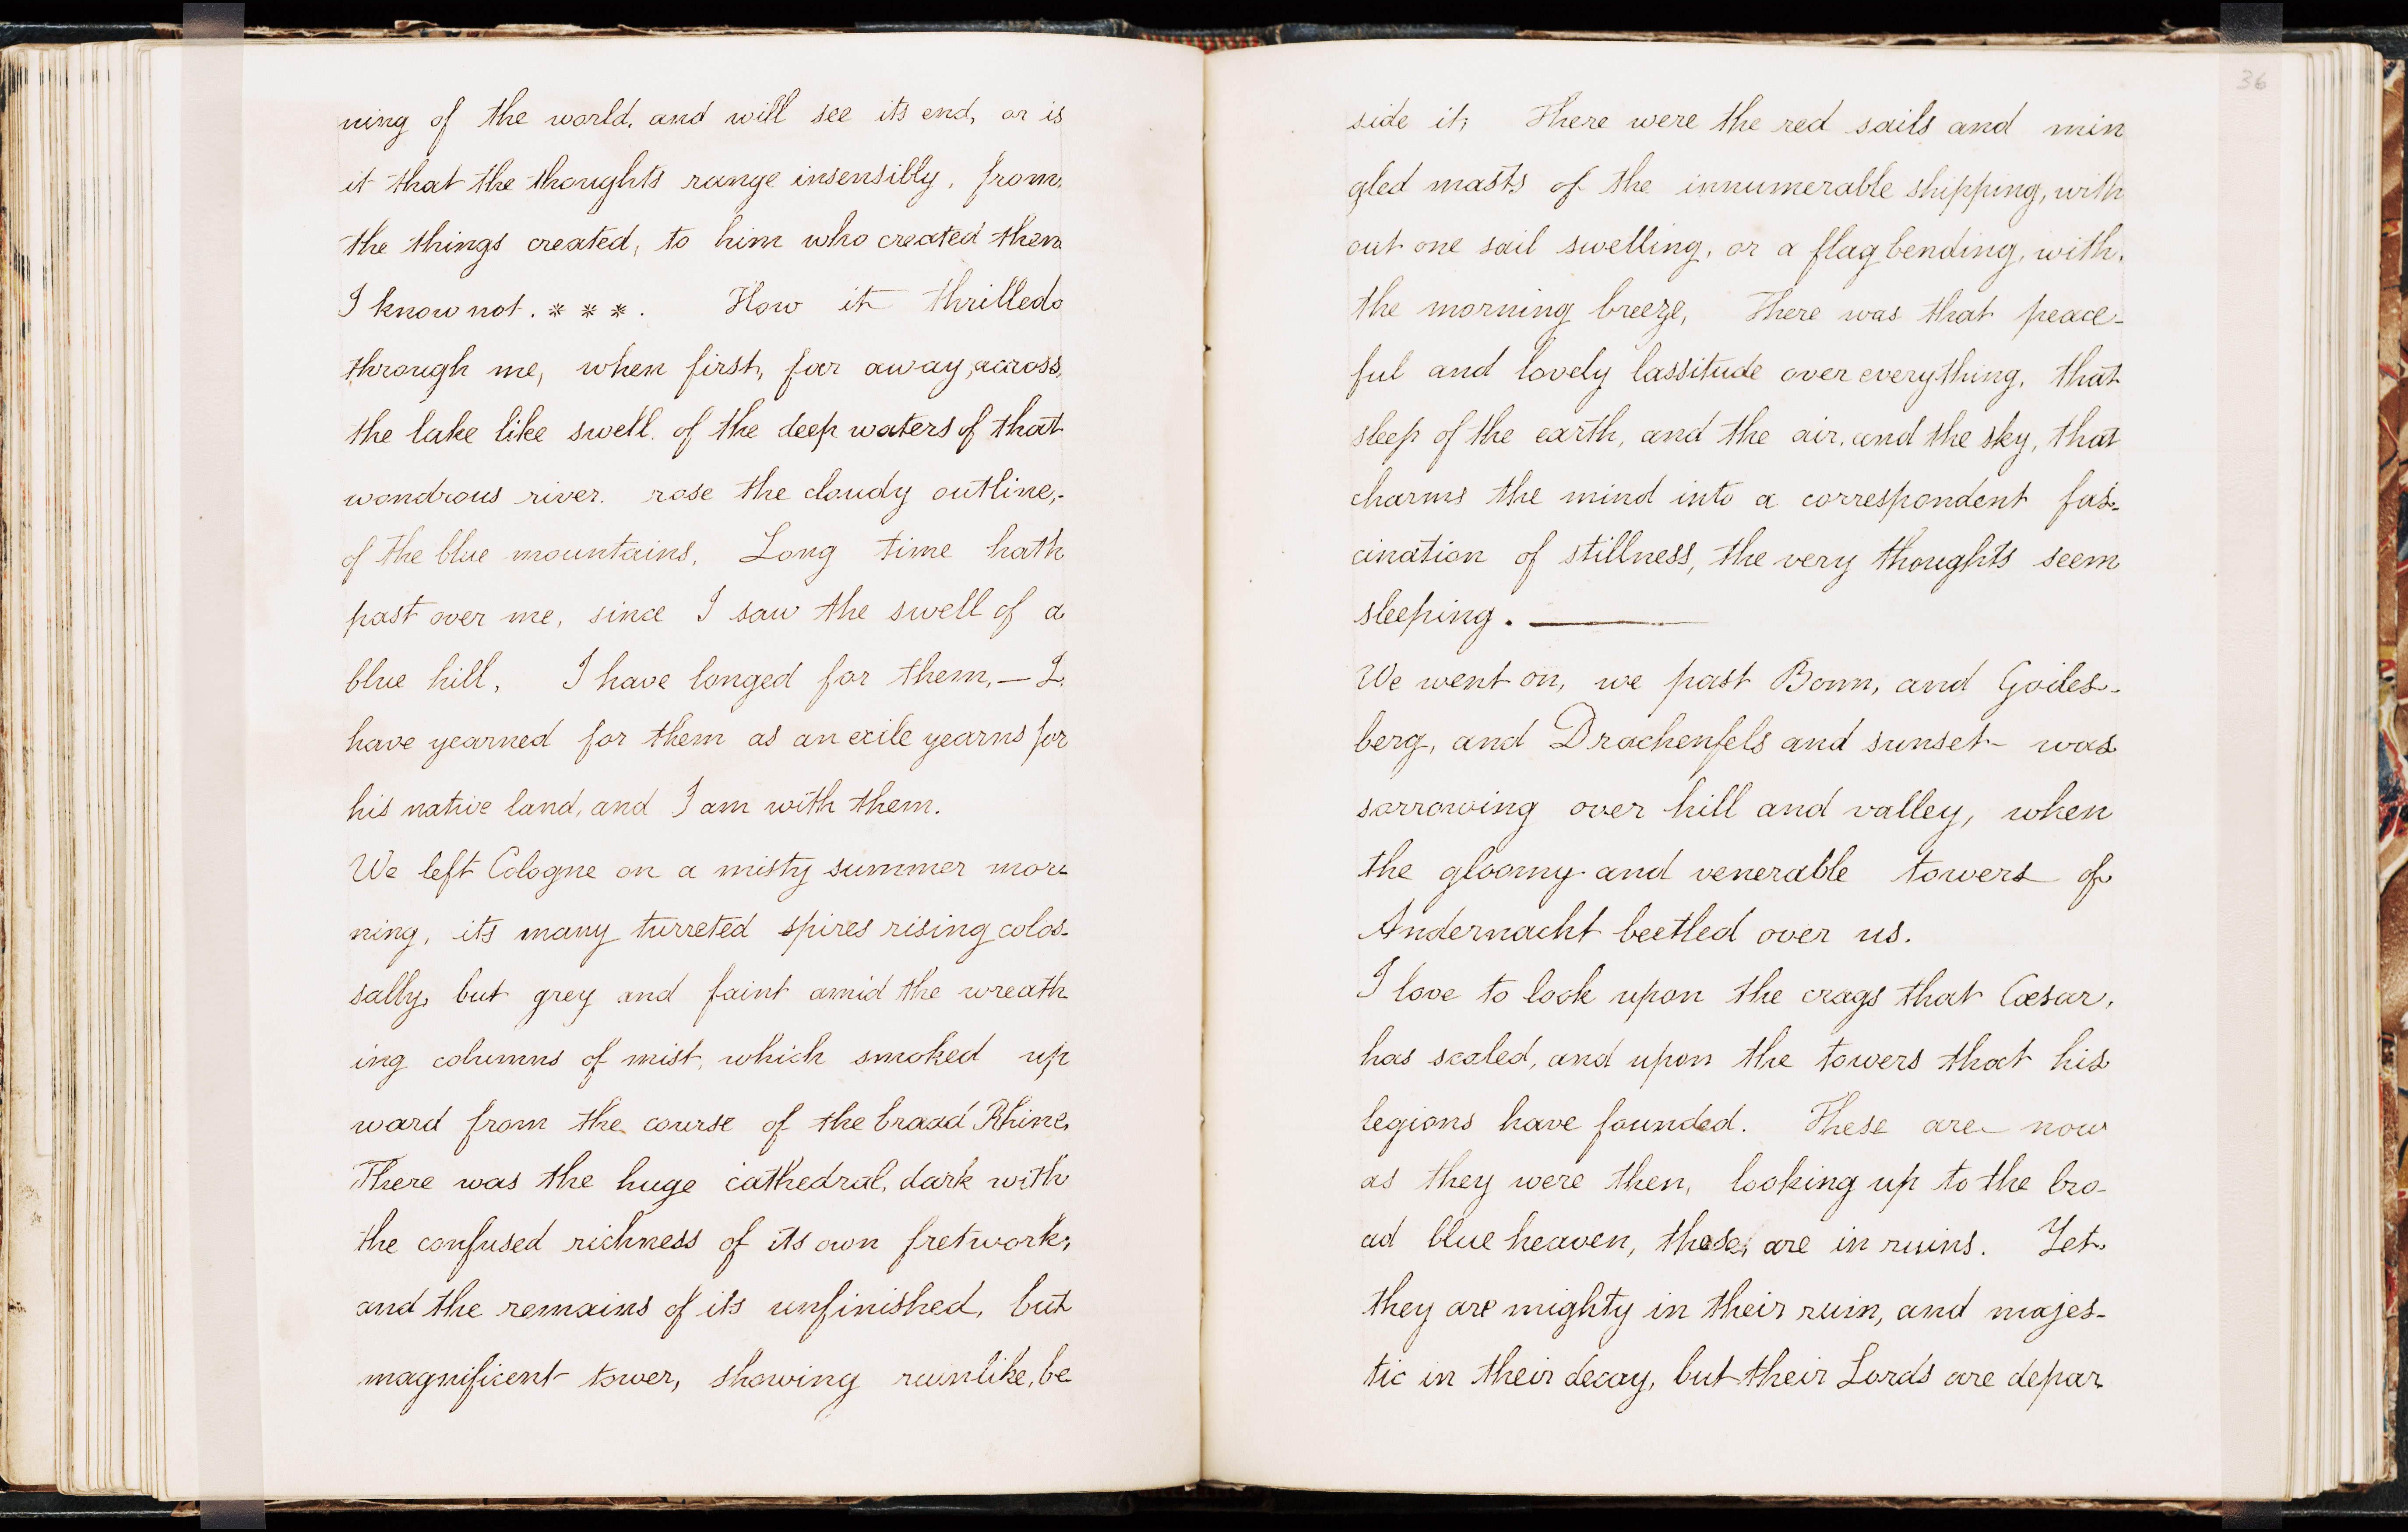 ning of the world, and will see its end, or is
it that the thoughts range insensibly, from,
the things created, to him who created them
I know not. * * *. How it thrilled
through me, when first, far away, across,
the lake like swell. of the deep waters of that
wondrous river. rose the cloudy outline,-
of the blue mountains. Long time hath
past over me, since I saw the swell of a
blue hill, I have longed for them, — I
have yearned for them as an exile yearns for
his native land, and I am with them.
We left Cologne on a misty summer mor-
ning, its many turreted spires rising colos-
sally, but grey and faint amid the wreath
ing columns of mist, which smoked up
ward from the course of the broad Rhine,
There was the huge cathedral, dark with
the confused richness of its own fretwork,
and the remains of its unfinished, but
magnificent tower, showing ruinlike, be
36
side it; There were the red sails and min
gled masts of the innumerable shipping, with
out one sail swelling, or a flag bending, with,
the morning breeze, There was that peace-
ful and lovely lassitude over everything, that
sleep of the earth, and the air, and the sky, that
charms the mind into a correspondent fas-
cination of stillness, the very thoughts seem
sleeping. —
We went on, we past Bonn, and Godes-
berg, and Drachenfels and sunset was
sorrowing over hill and valley, when
the gloomy and venerable towers of
Andernacht beetled over us.
I love to look upon the crags that Cæsar,
has scaled, and upon the towers that his
legions have founded. These are now
as they were then, looking up to the bro-
ad blue heaven, these, are in ruins. Yet.
they are mighty in their ruin, and majes-
tic in their decay, but their Lords are depar